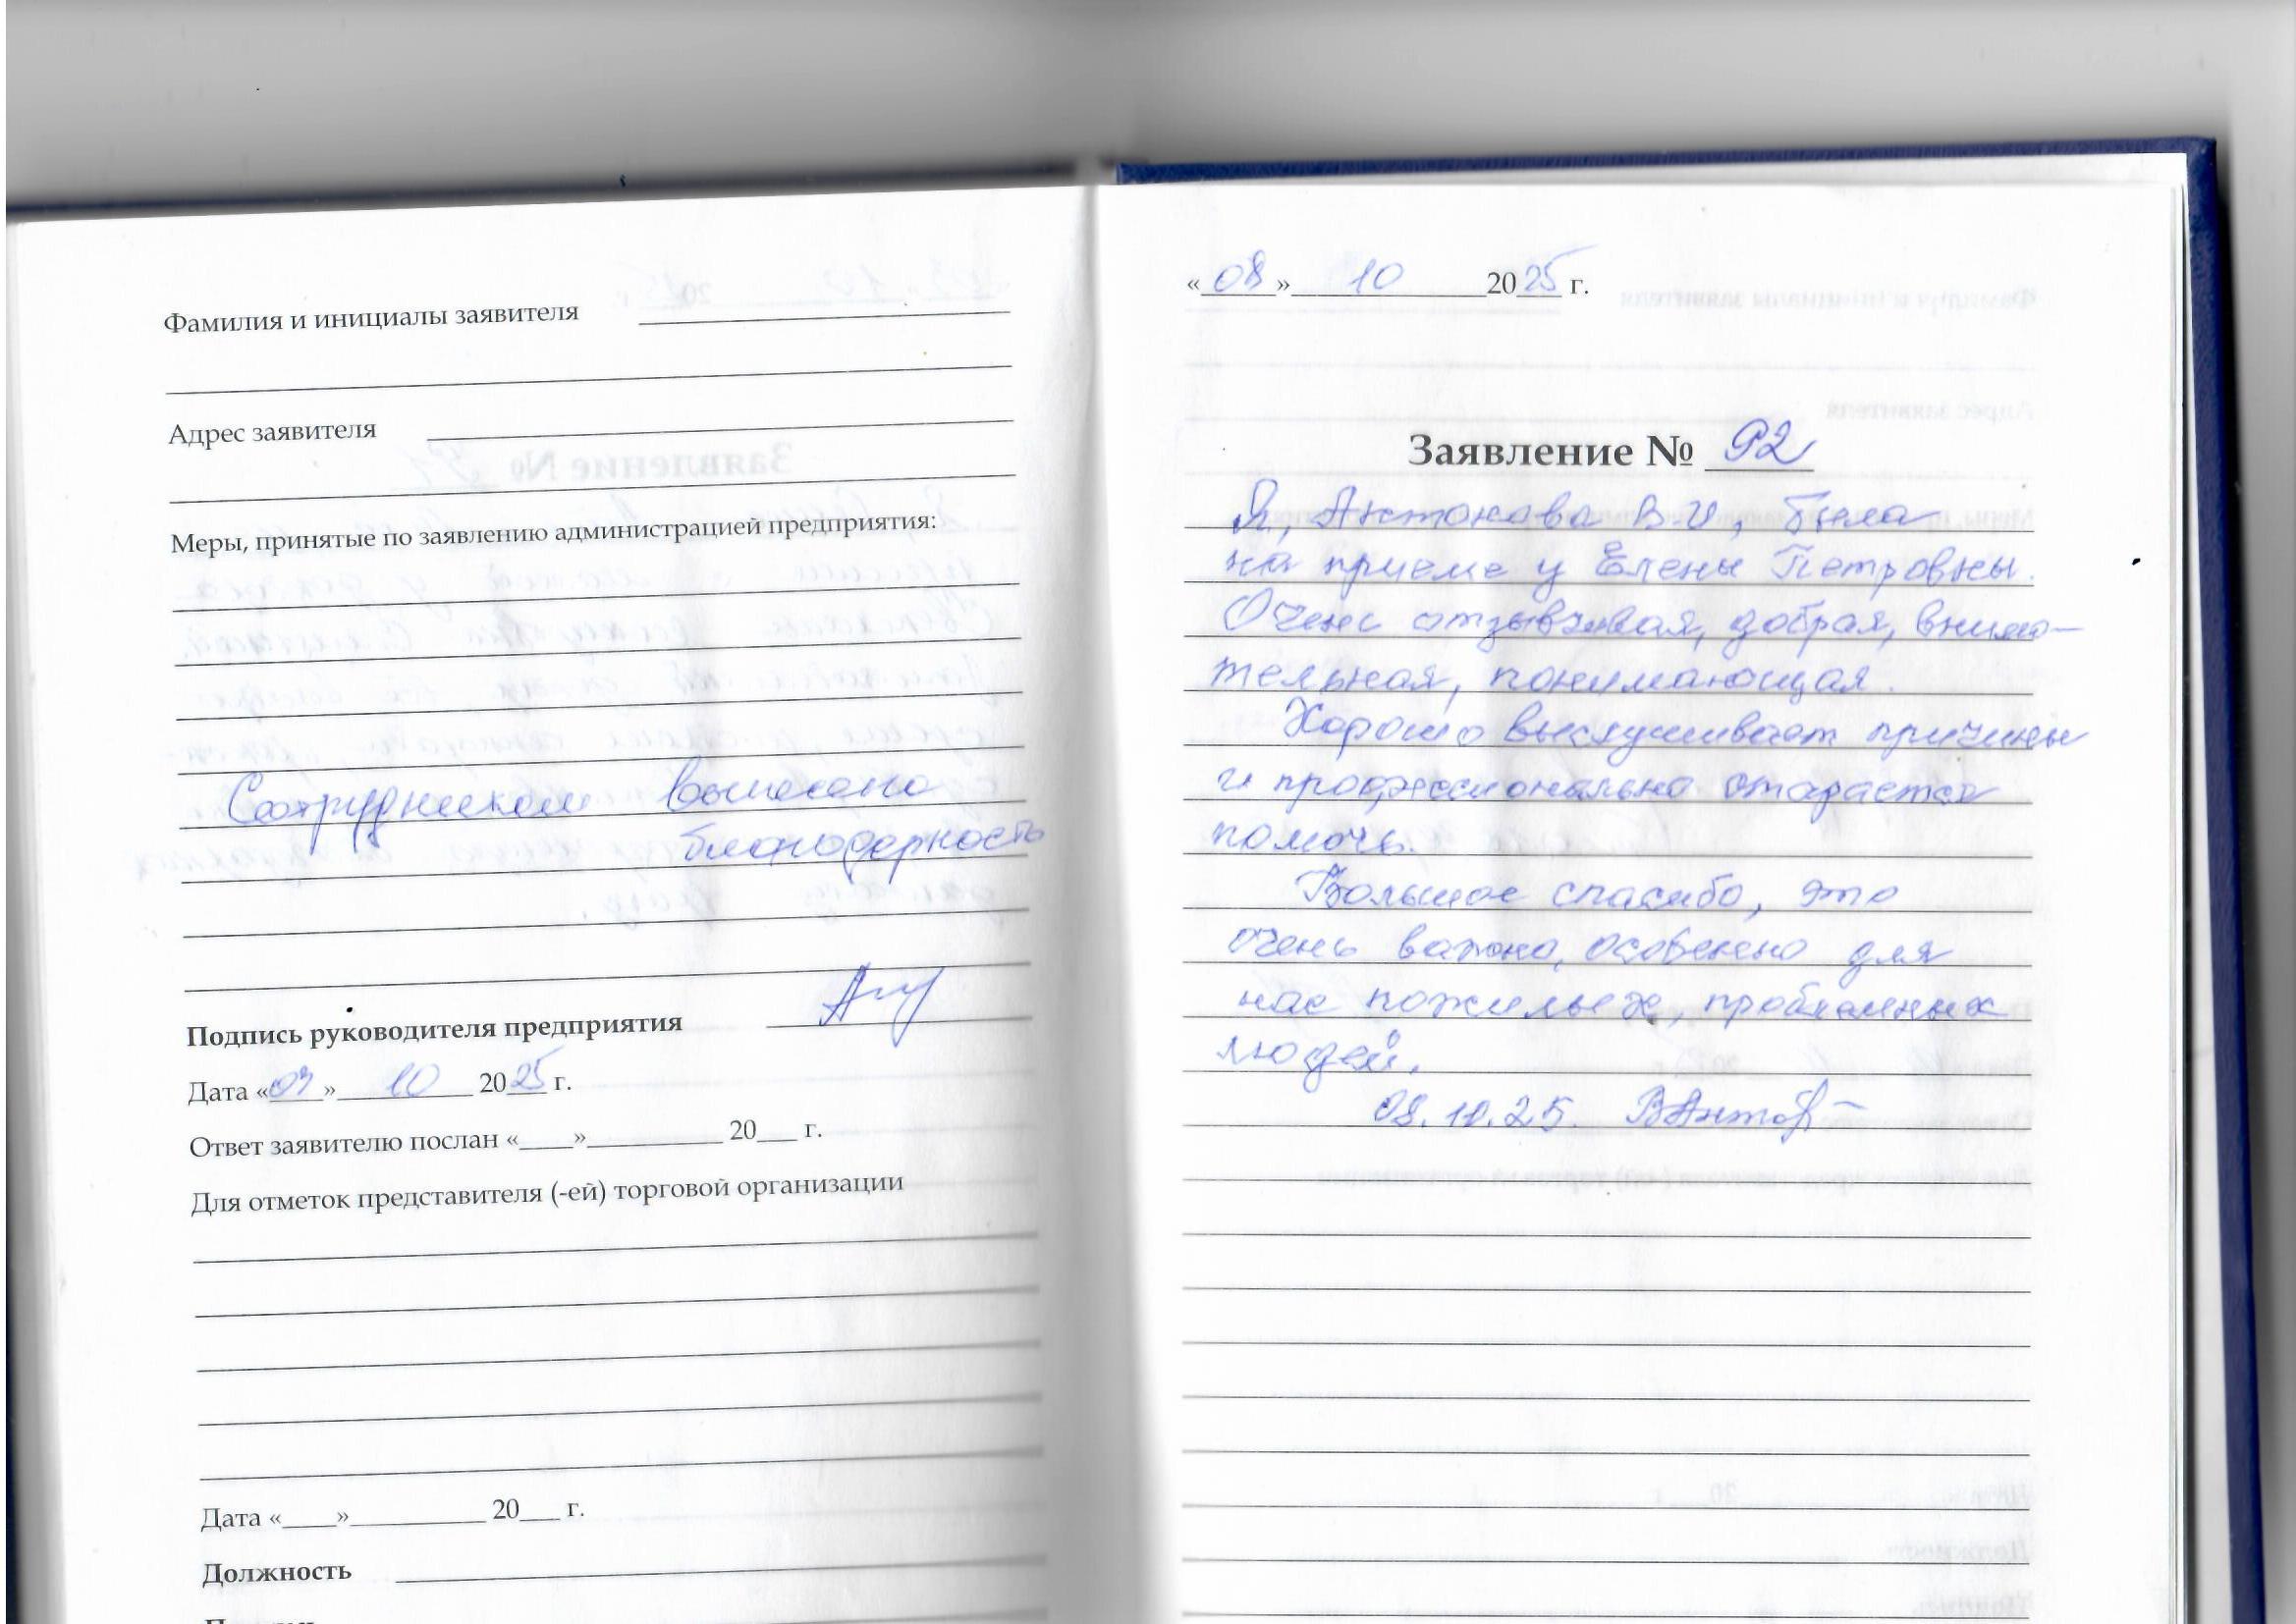 Фамилия и инициалы заявителя
Адрес заявителя
Меры, принятые по заявлению администрацией предприятия:
Сотрудникам вынесена
благодарность
Подпись руководителя предприятия
Дата «09» 10 2025 г.
Ответ заявителю послан «____»__________ 20___ г.
Для отметок представителя (-ей) торговой организации
Дата «____»__________ 20___ г.
Должность
«08» 10 2025 г.
Заявление № 92
Я, Антонова В.И, была
на приеме у Елены Петровны.
Очень отзывчивая, добрая, внима-
тельная, понимающая.
Хорошо выслушивает причины
и профессионально старается
помочь.
Большое спасибо, это
очень важно, особенно для
нас пожилых, проблемных
людей.
08.10.25. ВАнтоф